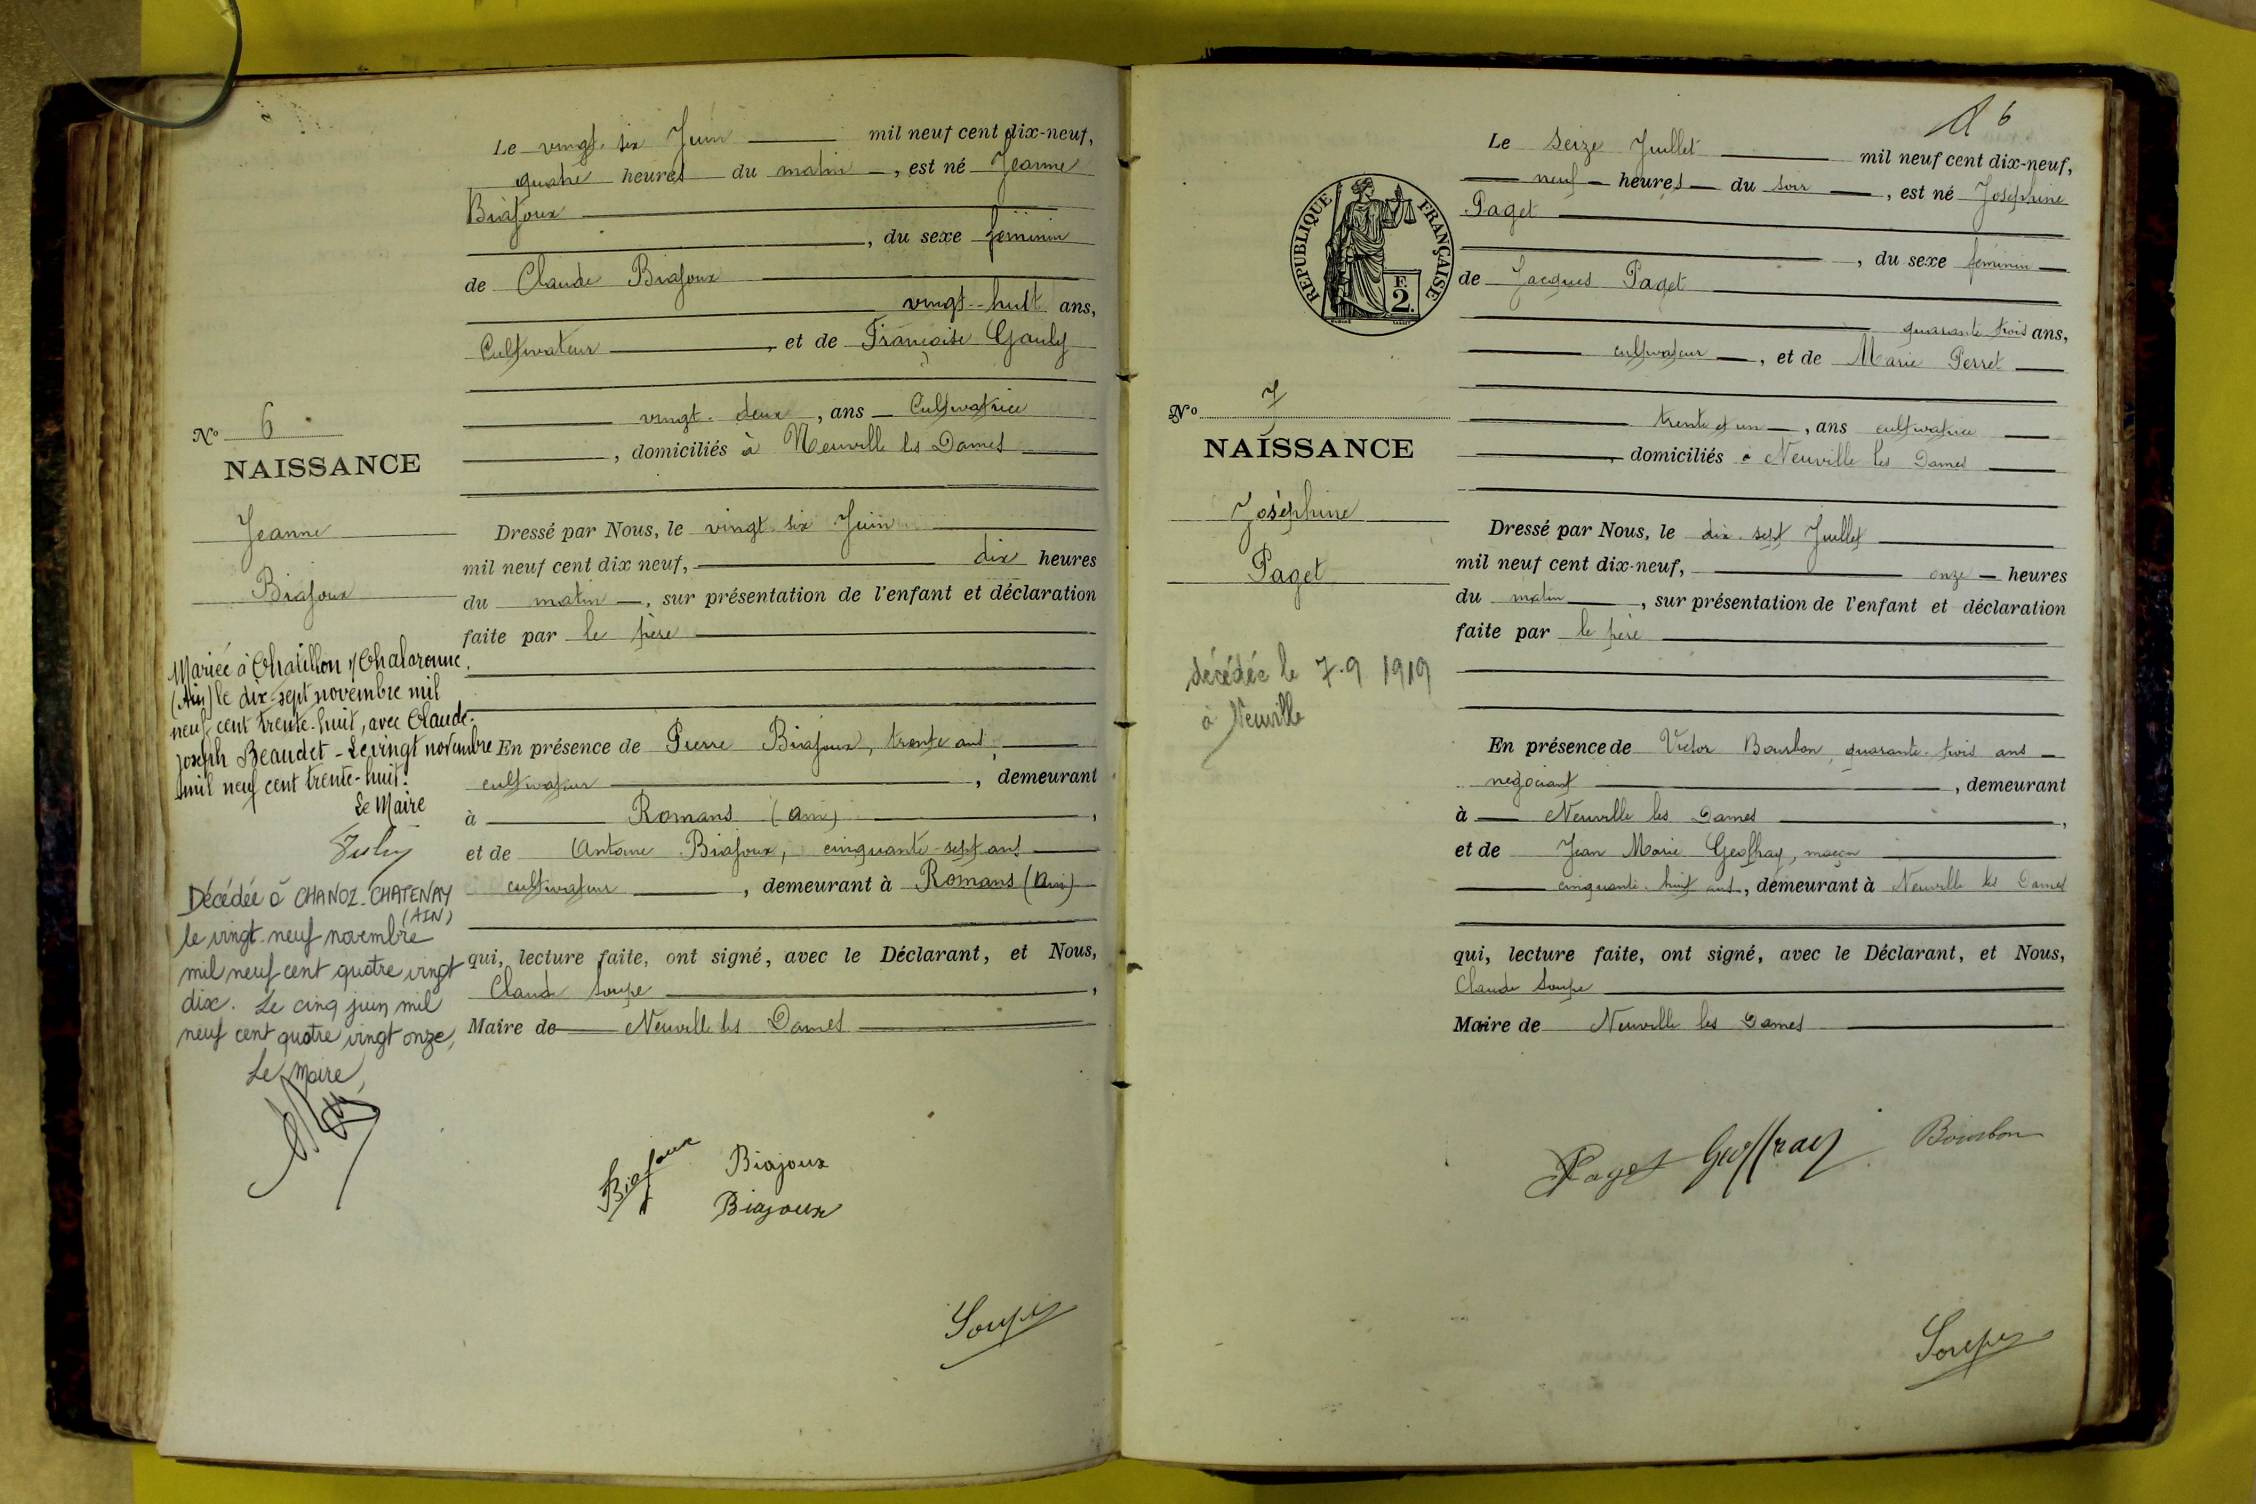 Le vingt-six Juin mil neuf cent dix-neuf,
quatre heures du matin, est né Jeanne
Biajoux
, du sexe féminin
de Claude Biajoux
vingt-huit ans,
Cultivateur, et de Françoise Gauly
vingt-deux, ans Cultivatrice
, domiciliés à Neuville les Dames
Nº 6
NAISSANCE
Jeanne
Biajoux
Dressé par Nous, le vingt six Juin
mil neuf cent dix neuf, dix heures
du matin, sur présentation de l'enfant et déclaration
faite par le père
Mariée à Chatillon s/Chalaronne
(Ain) le dix-sept novembre mil
neuf cent trente-huit, avec Claude-
Joseph Beaudet - Le vingt novembre
mil neuf cent trente-huit.
Le Maire
En présence de Pierre Biajoux, trente ans,
cultivateur, demeurant
à Romans (Ain),
et de Antoine Biajoux, cinquante-sept ans
cultivateur, demeurant à Romans (Ain)
Décédée à CHANOZ-CHATENAY
(AIN)
le vingt-neuf novembre
mil neuf cent quatre vingt
dix. Le cinq juin mil
neuf cent quatre vingt onze,
Le Maire,
qui, lecture faite, ont signé, avec le Déclarant, et Nous,
Claude Soupe,
Maire de Neuville les Dames
Biajoux
Biajoux
Biajoux
Soupe
6
Le Seize Juillet mil neuf cent dix-neuf,
neuf heures du soir, est né Joséphine
Paget
, du sexe féminin
de Jacques Paget
quarante trois ans,
cultivateur, et de Marie Perret
trente et un, ans cultivatrice
, domiciliés à Neuville les Dames
RÉPUBLIQUE FRANÇAISE
F.
2.
Nº 7
NAISSANCE
Joséphine
Paget
décédée le 7.9 1919
à Neuville
Dressé par Nous, le dix-sept Juillet
mil neuf cent dix-neuf, onze heures
du matin, sur présentation de l'enfant et déclaration
faite par le père
En présence de Victor Bourbon, quarante-trois ans
négociant, demeurant
à Neuville les Dames,
et de Jean Marie Geoffray, maçon
cinquante-huit ans, demeurant à Neuville les Dames
qui, lecture faite, ont signé, avec le Déclarant, et Nous,
Claude Soupe
Maire de Neuville les Dames
Paget Geoffray Bourbon
Soupe